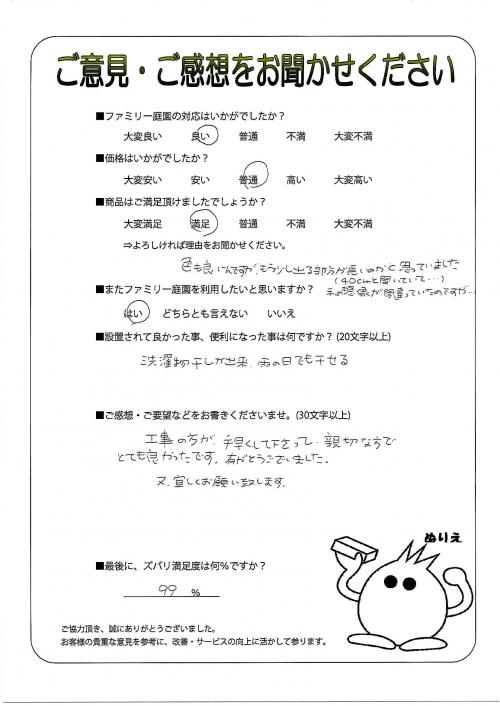 ご意見・ご感想をお聞かせください
■ファミリー庭園の対応はいかがでしたか?
大変良い 良い 普通 不満 大変不満
■価格はいかがでしたか?
大変安い 安い 普通 高い 大変高い
■商品はご満足頂けましたでしょうか?
大変満足 満足 普通 不満 大変不満
⇒よろしければ理由をお聞かせください。
色も良いんですが、もう少し出る部分が長いのかと思っていました
(40cmと聞いていて…)
私の想像が間違っていたのですが…
■またファミリー庭園を利用したいと思いますか?
はい どちらとも言えない いいえ
■設置されて良かった事、便利になった事は何ですか? (20文字以上)
洗濯物干しが出来、雨の日でも干せる
■ご感想・ご要望などをお書きくださいませ。(30文字以上)
工事の方が、手早くして下さって、親切な方で
とても良かったです。有がとうございました。
又、宜しくお願い致します。
ぬりえ
■最後に、ズバリ満足度は何%ですか?
99 %
ご協力頂き、誠にありがとうございました。
お客様の貴重な意見を参考に、改善・サービスの向上に活かして参ります。